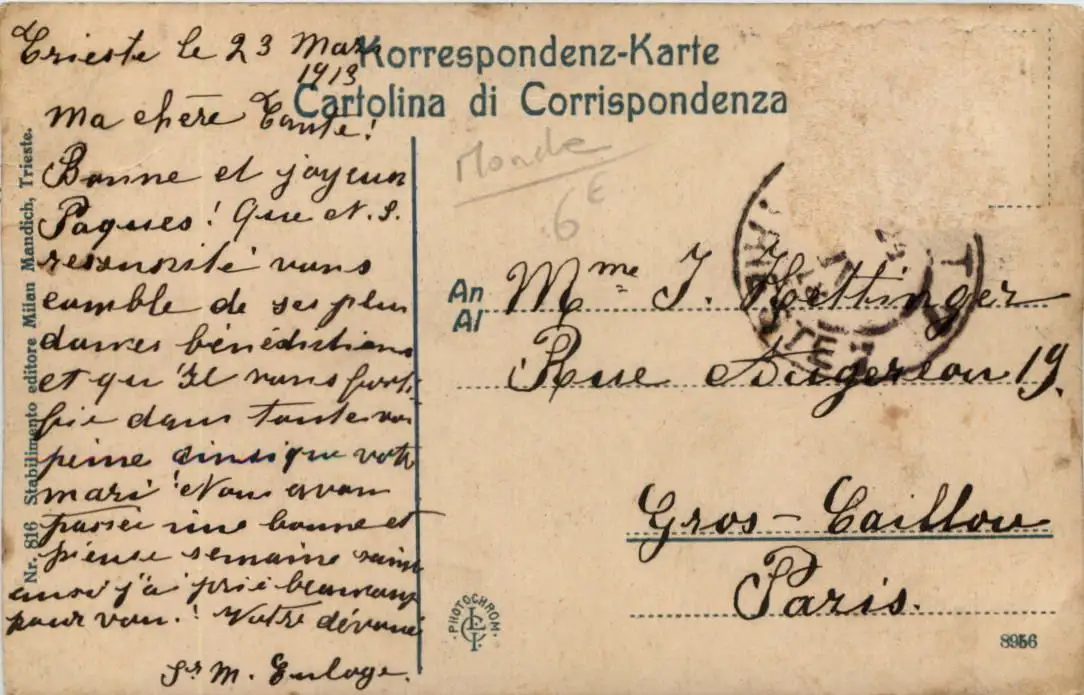 Korrespondenz-Karte
Cartolina di Corrispondenza
Trieste le 23 Mars
1913
Ma chère Tante!
Bonne et joyeux
Paques! Que N. S.
ressuscité vous
comble de ses plus
douces bénédictions
et qu'Il vous forti
fie dans toute vos
peine ainsi que votre
mari! Nous avons
passée une bonne et
pieuse semaine sainte
aussi j'ai prié beaucoup
pour vous! Votre dévouée
Sr M. Euloge.
Nr. 816 Stabilimento editore Milan Mandich, Trieste.
Monde
6€
An
Al
Mme J. Hettinger
Rue Augereau 19.
Gros-Caillou
Paris.
PHOTOCHROM